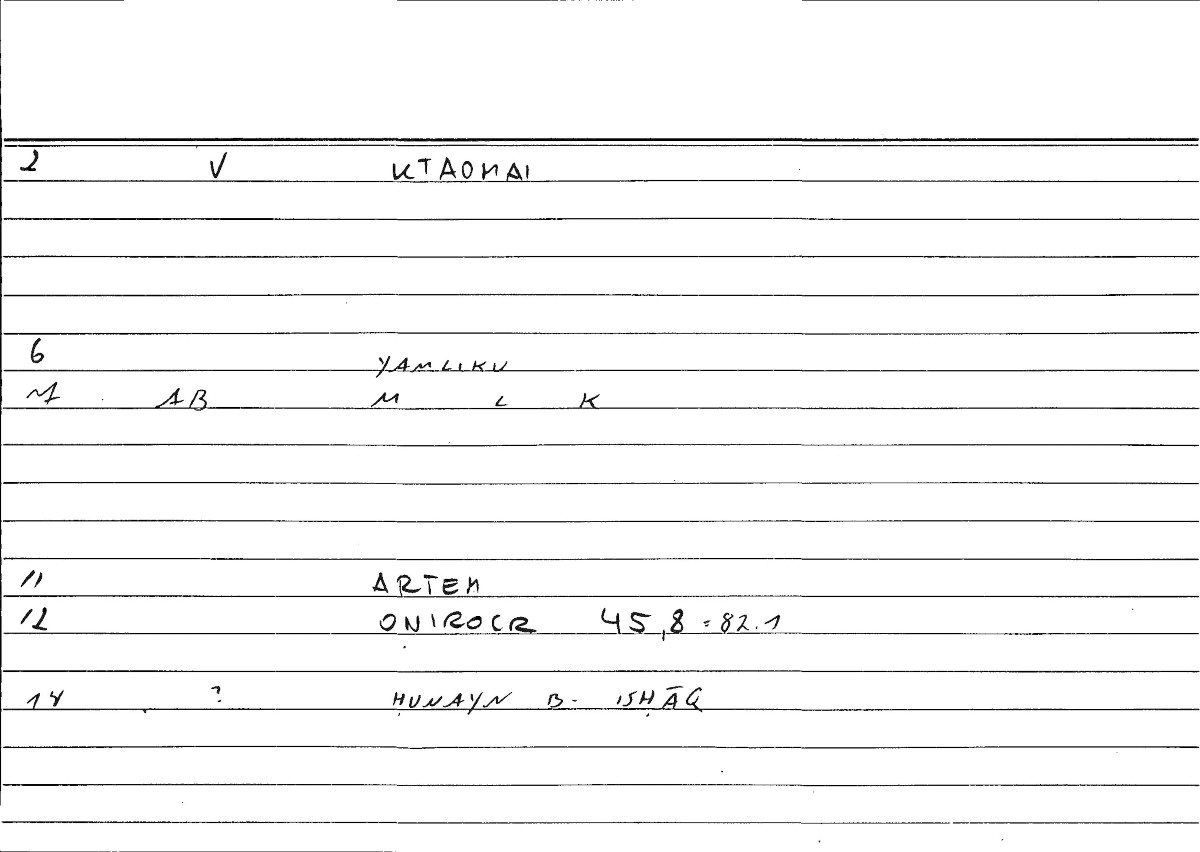 2 V KTAOMAI
6 YAMLIKU
7 AB M L K
11 ARTEM
12 ONIROCR 45,8 = 82.1
14 ? ḤUNAYN B. ISḤĀQ